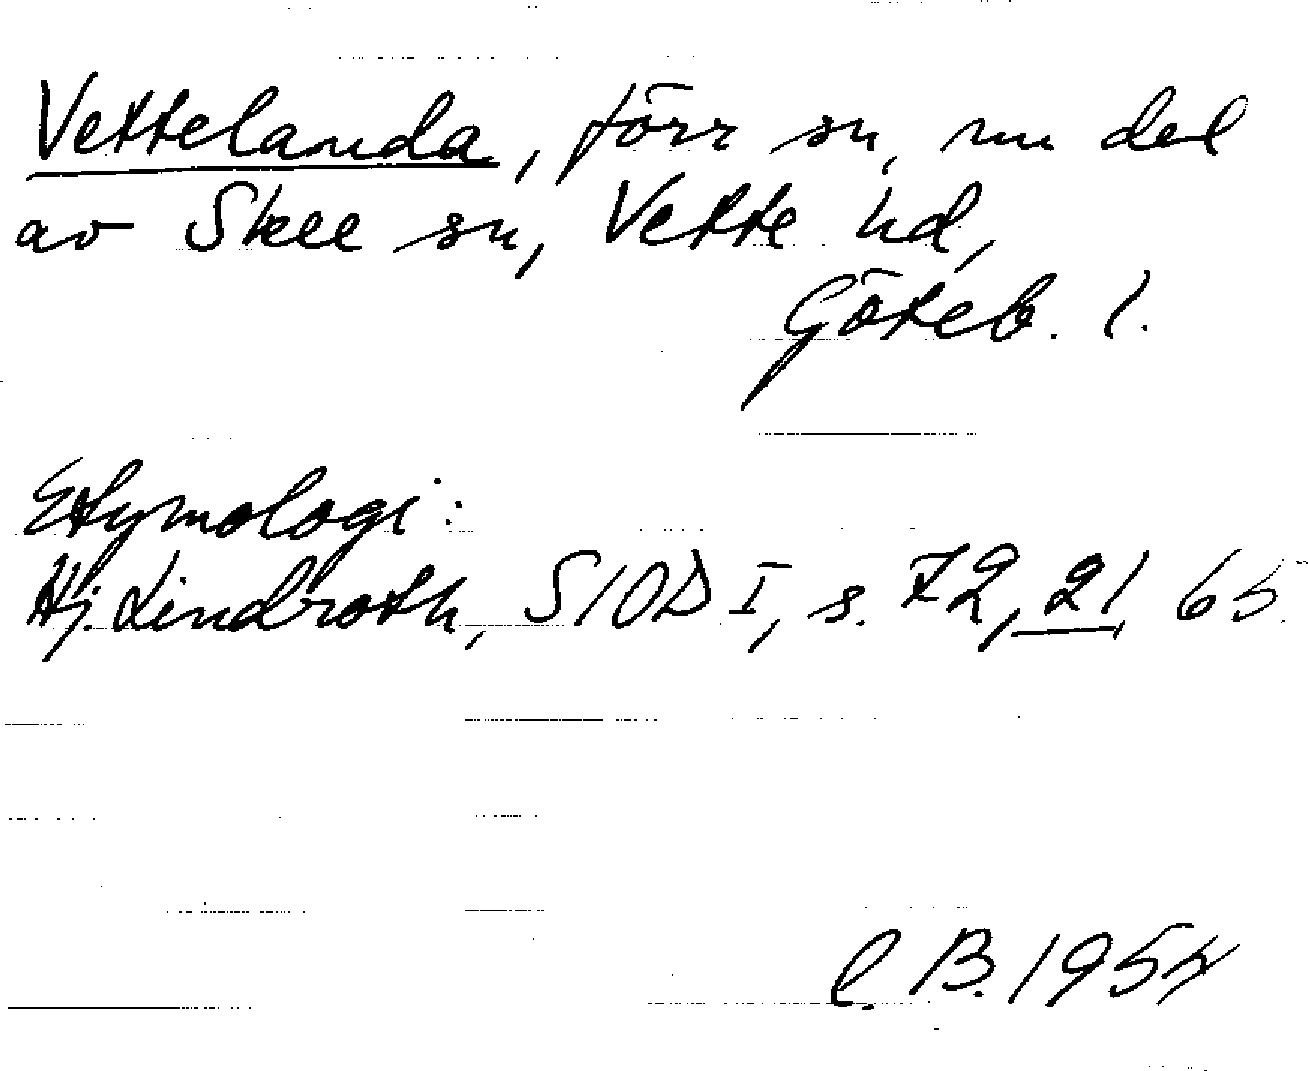 Vettelanda, förr sn, nu del
av Skee sn, Vette hd,
Göteb. l.
Etymologi:
Hj. Lindroth, SIOD I, s. 72, 21, 65.
C. B. 1954